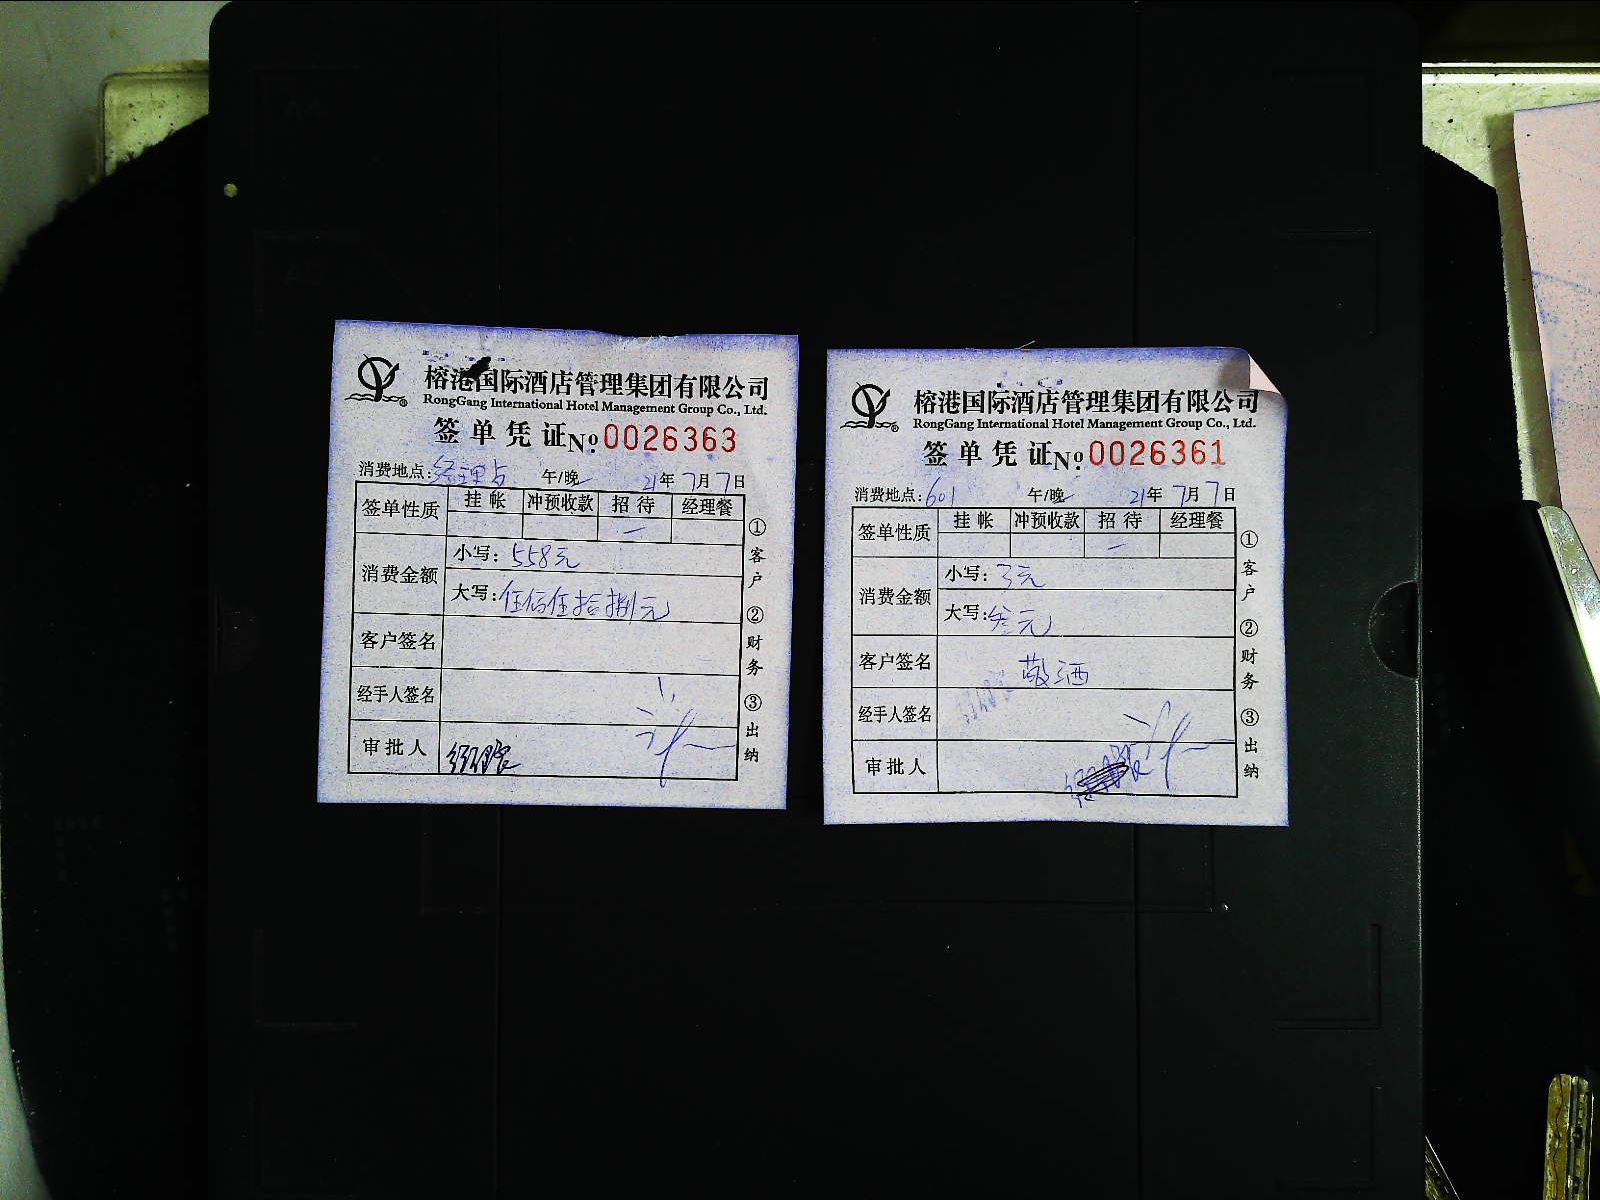 榕港国际酒店管理集团有限公司
RongGang International Hotel Management Group Co., Ltd.
签单凭证 No: 0026363
消费地点: 经理点 午/晚 21年7月7日
签单性质 挂帐 冲预收款 招待 经理餐
消费金额
小写: 558元
大写: 伍佰伍拾捌元
客户签名
经手人签名
审批人
①客户 ②财务 ③出纳
榕港国际酒店管理集团有限公司
RongGang International Hotel Management Group Co., Ltd.
签单凭证 No: 0026361
消费地点: 601 午/晚 21年7月7日
签单性质 挂帐 冲预收款 招待 经理餐
消费金额
小写: 3元
大写: 叁元
客户签名 敬酒
经手人签名
审批人
①客户 ②财务 ③出纳